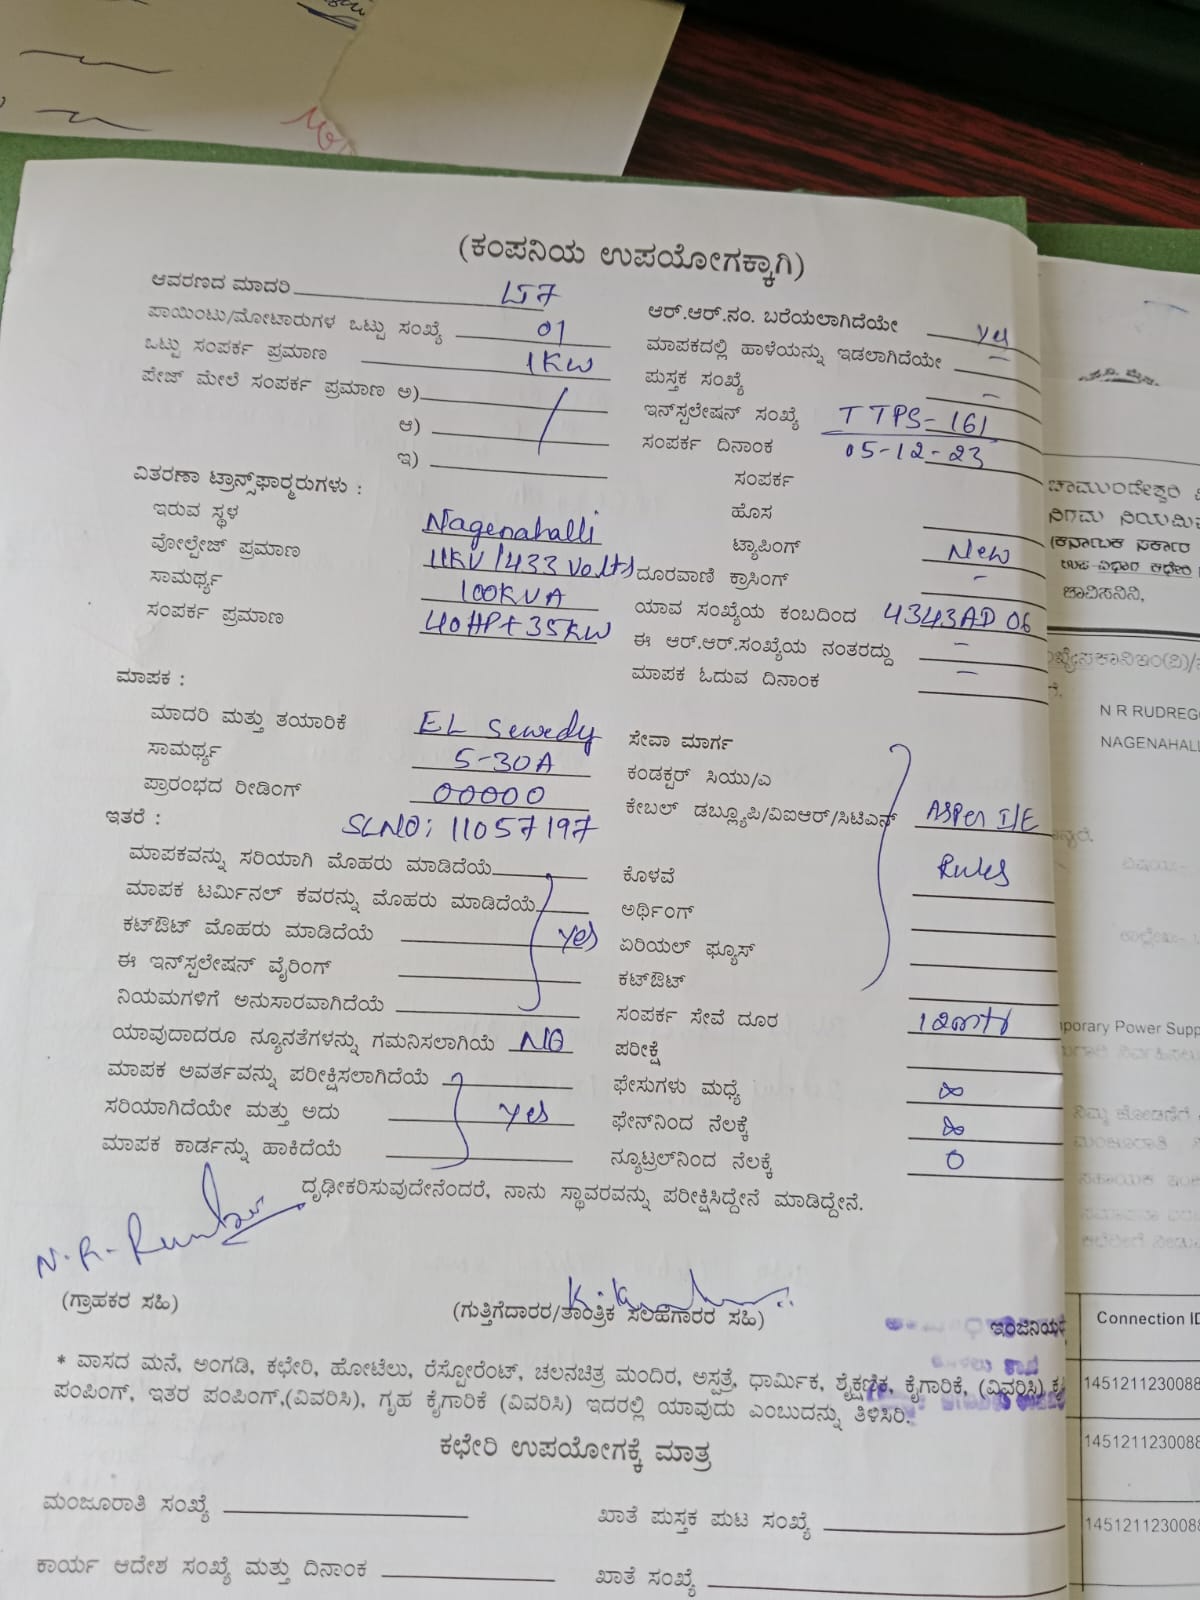 (ಕಂಪನಿಯ ಉಪಯೋಗಕ್ಕಾಗಿ)
ಆವರಣದ ಮಾದರಿ LT7
ಪಾಯಿಂಟು/ಮೋಟಾರುಗಳ ಒಟ್ಟು ಸಂಖ್ಯೆ 01
ಒಟ್ಟು ಸಂಪರ್ಕ ಪ್ರಮಾಣ 1KW
ಪೇಜ್ ಮೇಲೆ ಸಂಪರ್ಕ ಪ್ರಮಾಣ ಅ)
ಆ)
ಇ)
ವಿತರಣಾ ಟ್ರಾನ್ಸ್‌ಫಾರ‍್ಮರುಗಳು :
ಇರುವ ಸ್ಥಳ Nagenahalli
ವೋಲ್ಟೇಜ್ ಪ್ರಮಾಣ 11KV/433 Volts
ಸಾಮರ್ಥ್ಯ 100KVA
ಸಂಪರ್ಕ ಪ್ರಮಾಣ 40HP+35KW
ಮಾಪಕ :
ಮಾದರಿ ಮತ್ತು ತಯಾರಿಕೆ EL Sewedy
ಸಾಮರ್ಥ್ಯ 5-30A
ಪ್ರಾರಂಭದ ರೀಡಿಂಗ್ 00000
ಇತರೆ : SLNO: 11057197
ಮಾಪಕವನ್ನು ಸರಿಯಾಗಿ ಮೊಹರು ಮಾಡಿದೆಯೆ
ಮಾಪಕ ಟರ್ಮಿನಲ್ ಕವರನ್ನು ಮೊಹರು ಮಾಡಿದೆಯೆ
ಕಟ್‌ಔಟ್ ಮೊಹರು ಮಾಡಿದೆಯೆ yes
ಈ ಇನ್‌ಸ್ಟಲೇಷನ್ ವೈರಿಂಗ್
ನಿಯಮಗಳಿಗೆ ಅನುಸಾರವಾಗಿದೆಯೆ
ಯಾವುದಾದರೂ ನ್ಯೂನತೆಗಳನ್ನು ಗಮನಿಸಲಾಗಿಯೆ NO
ಮಾಪಕ ಅವರ್ತವನ್ನು ಪರೀಕ್ಷಿಸಲಾಗಿದೆಯೆ
ಸರಿಯಾಗಿದೆಯೇ ಮತ್ತು ಅದು yes
ಮಾಪಕ ಕಾರ್ಡನ್ನು ಹಾಕಿದೆಯೆ
ಆರ್.ಆರ್.ನಂ. ಬರೆಯಲಾಗಿದೆಯೇ yes
ಮಾಪಕದಲ್ಲಿ ಹಾಳೆಯನ್ನು ಇಡಲಾಗಿದೆಯೇ -
ಪುಸ್ತಕ ಸಂಖ್ಯೆ -
ಇನ್‌ಸ್ಟಲೇಷನ್ ಸಂಖ್ಯೆ TTPS-161
ಸಂಪರ್ಕ ದಿನಾಂಕ 05-12-23
ಸಂಪರ್ಕ
ಹೊಸ
ಟ್ಯಾಪಿಂಗ್ New
ದೂರವಾಣಿ ಕ್ರಾಸಿಂಗ್ -
ಯಾವ ಸಂಖ್ಯೆಯ ಕಂಬದಿಂದ 4343AD 06
ಈ ಆರ್.ಆರ್.ಸಂಖ್ಯೆಯ ನಂತರದ್ದು -
ಮಾಪಕ ಓದುವ ದಿನಾಂಕ -
ಸೇವಾ ಮಾರ್ಗ
ಕಂಡಕ್ಟರ್ ಸಿಯು/ಎ
ಕೇಬಲ್ ಡಬ್ಲ್ಯೂಪಿ/ವಿಐಆರ್/ಸಿಟಿಎಸ್ ASPer I/E
ಕೊಳವೆ Rules
ಅರ್ಥಿಂಗ್
ಏರಿಯಲ್ ಫ್ಯೂಸ್
ಕಟ್‌ಔಟ್
ಸಂಪರ್ಕ ಸೇವೆ ದೂರ
ಪರೀಕ್ಷೆ
ಫೇಸುಗಳು ಮಧ್ಯೆ ∞
ಫೇಸ್‌ನಿಂದ ನೆಲಕ್ಕೆ ∞
ನ್ಯೂಟ್ರಲ್‌ನಿಂದ ನೆಲಕ್ಕೆ 0
ದೃಢೀಕರಿಸುವುದೇನೆಂದರೆ, ನಾನು ಸ್ಥಾವರವನ್ನು ಪರೀಕ್ಷಿಸಿದ್ದೇನೆ ಮಾಡಿದ್ದೇನೆ.
(ಗ್ರಾಹಕರ ಸಹಿ)
(ಗುತ್ತಿಗೆದಾರರ/ತಾಂತ್ರಿಕ ಸಲಹೆಗಾರರ ಸಹಿ)
ಇಂಜಿನಿಯರ
* ವಾಸದ ಮನೆ, ಅಂಗಡಿ, ಕಛೇರಿ, ಹೋಟೆಲು, ರೆಸ್ಟೋರೆಂಟ್, ಚಲನಚಿತ್ರ ಮಂದಿರ, ಅಸ್ಪತ್ರೆ, ಧಾರ್ಮಿಕ, ಶೈಕ್ಷಣಿಕ, ಕೈಗಾರಿಕೆ, (ವಿವರಿಸಿ) ಕೃ
ಪಂಪಿಂಗ್, ಇತರ ಪಂಪಿಂಗ್,(ವಿವರಿಸಿ), ಗೃಹ ಕೈಗಾರಿಕೆ (ವಿವರಿಸಿ) ಇದರಲ್ಲಿ ಯಾವುದು ಎಂಬುದನ್ನು ತಿಳಿಸಿರಿ.
ಕಛೇರಿ ಉಪಯೋಗಕ್ಕೆ ಮಾತ್ರ
ಮಂಜೂರಾತಿ ಸಂಖ್ಯೆ
ಖಾತೆ ಪುಸ್ತಕ ಪುಟ ಸಂಖ್ಯೆ
ಕಾರ್ಯ ಆದೇಶ ಸಂಖ್ಯೆ ಮತ್ತು ದಿನಾಂಕ
ಖಾತೆ ಸಂಖ್ಯೆ
ಚಾಮುಂಡೇಶ್ವರಿ
ನಿಗಮ ನಿಯಮಿ
(ಕರ್ನಾಟಕ ಸರ್ಕಾರ
N R RUDREG
NAGENAHALL
porary Power Supp
Connection ID
1451211230088
1451211230088
1451211230088